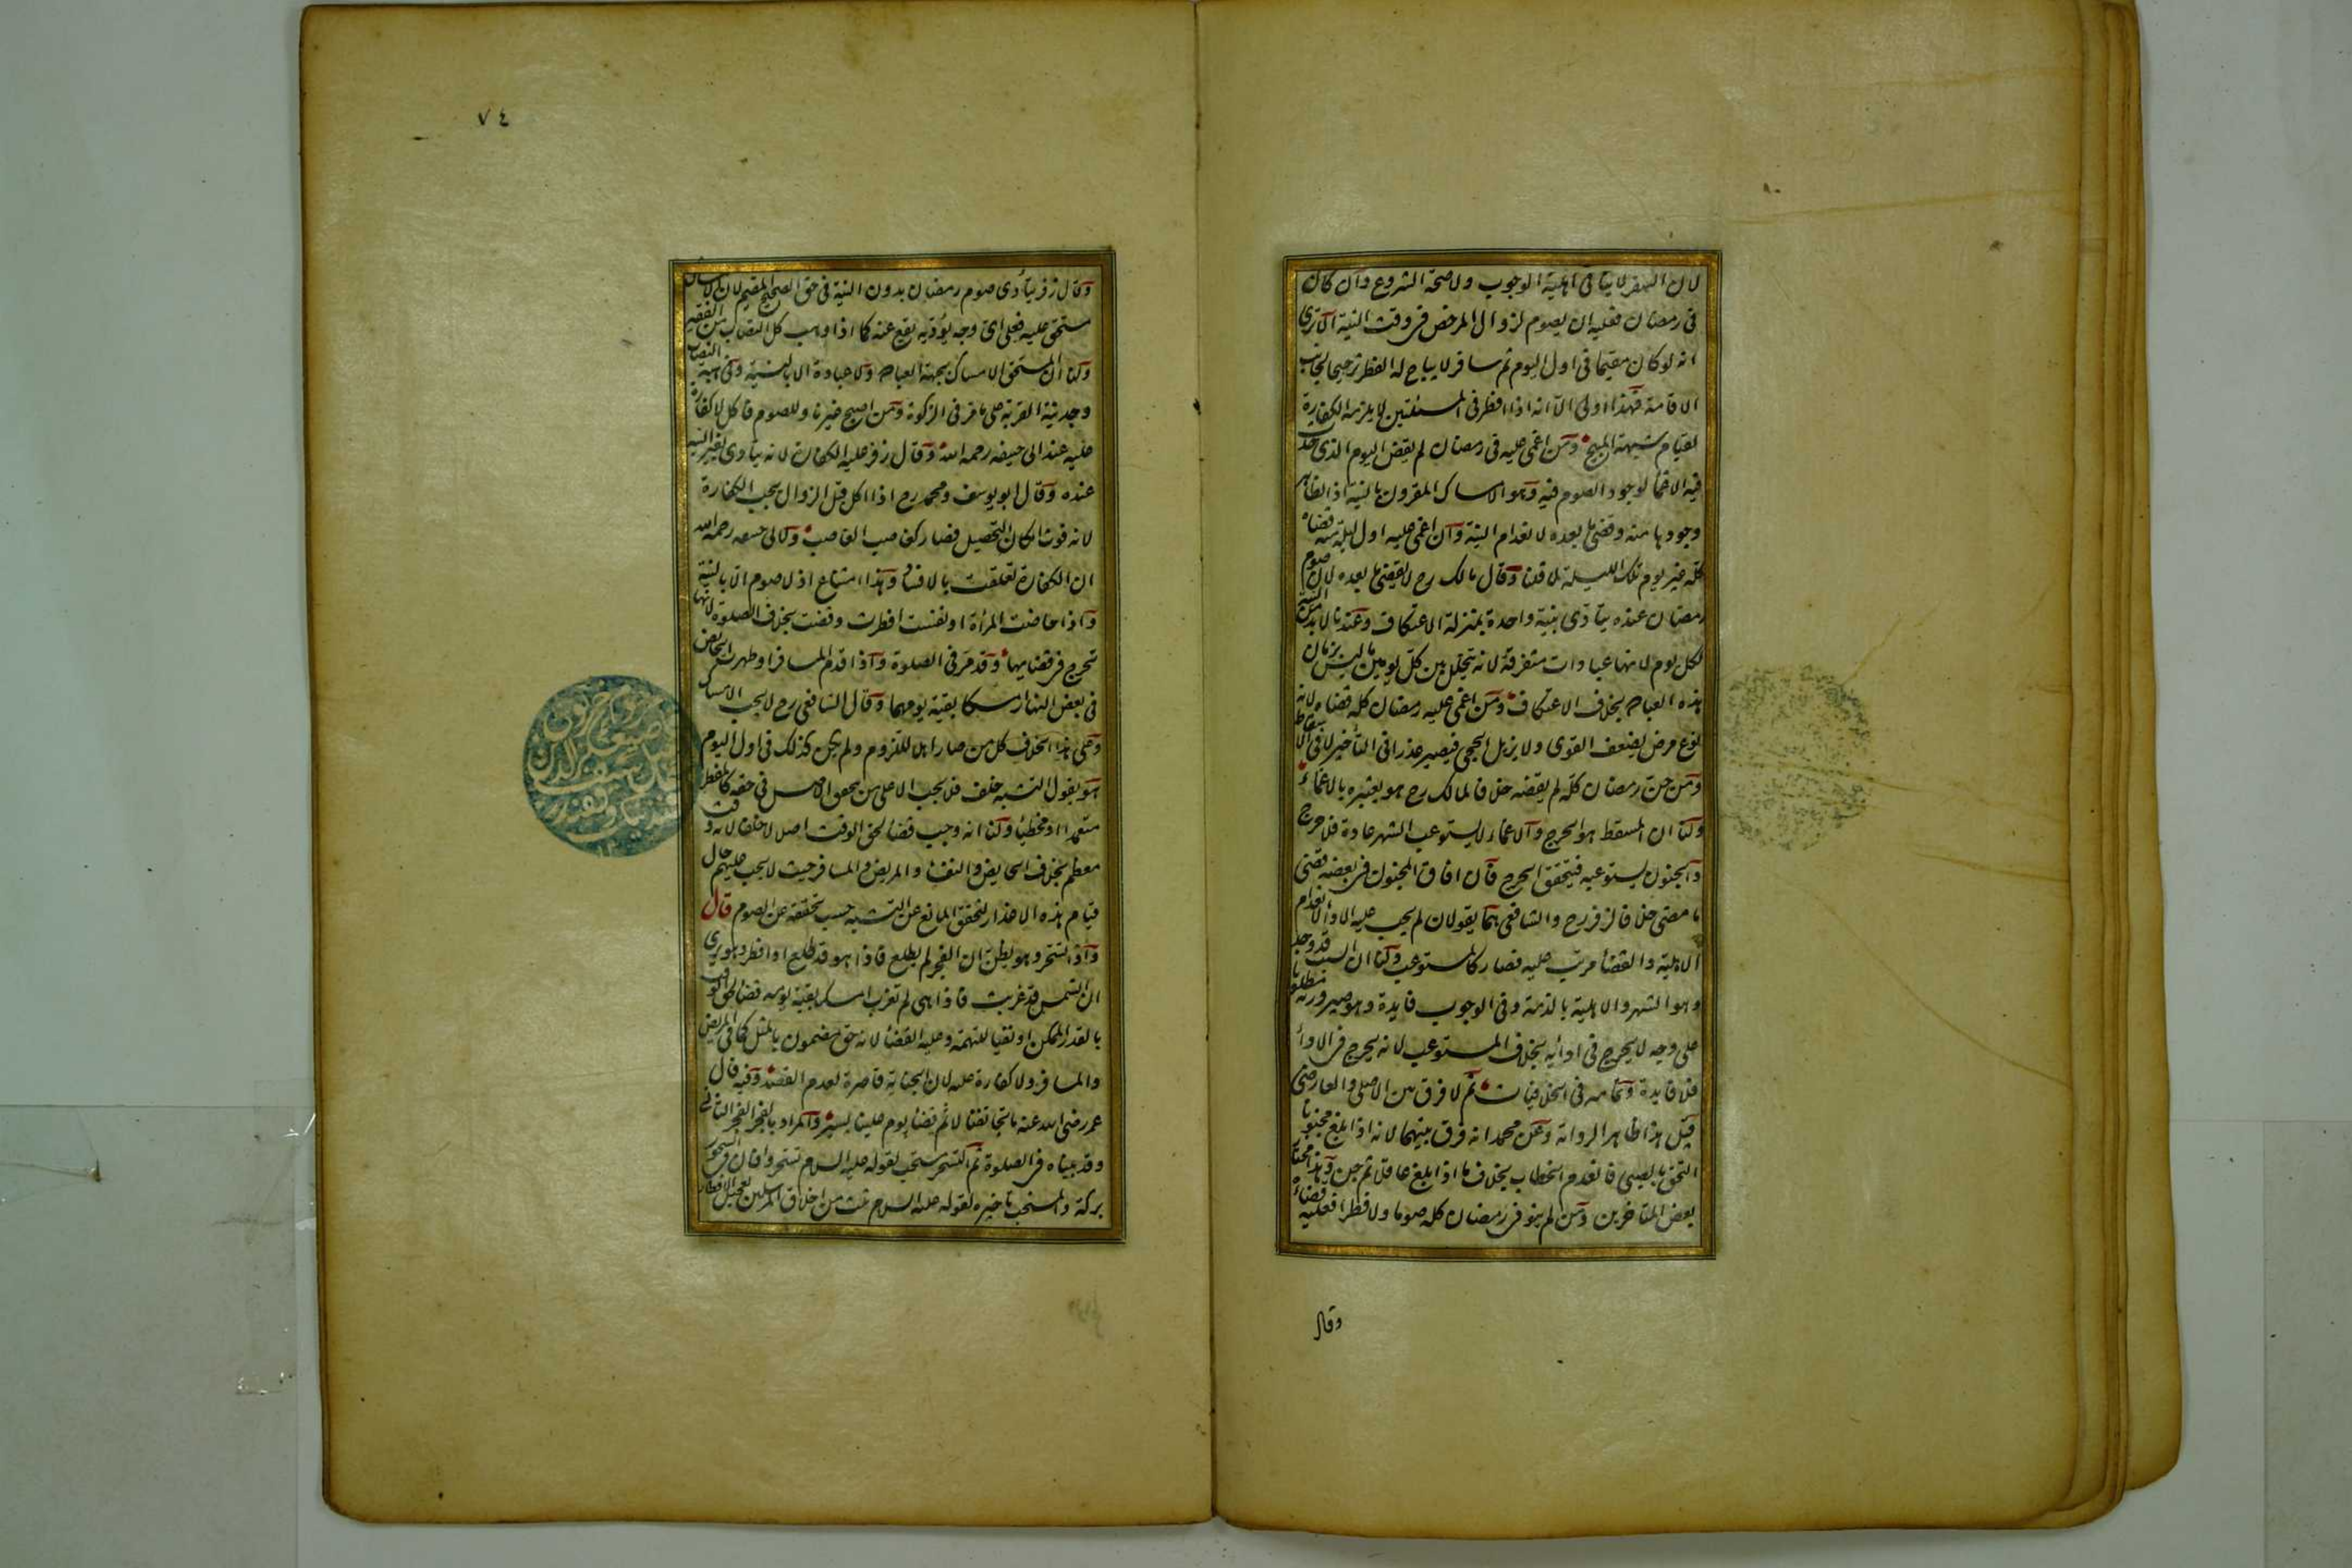 لان السفر لا ينافى اهلية الوجوب ولا صحة الشروع وان كان
فى رمضان فعليه ان يصوم لزوال المرخص فى وقت النية الا ترى
انه لو كان مقيما فى اول اليوم ثم سافر لا يباح له الفطر ترجيحا لجانب
الاقامة فهذا اولى الا انه اذا افطر فى المسئلتين لا يلزمه الكفارة
لقيام شبهة المبيح ومن اغمى عليه فى رمضان لم يقض اليوم الذى حدث
فيه الاغما لوجود الصوم فيه وهو الامساك المقرون بالنية اذ الظاهر
وجودها منه وقضى ما بعده لانعدام النية وان اغمى عليه اول ليلة منه قضاه
كله غير يوم تلك الليلة لما قلنا وقال مالك رح لا يقضى ما بعده لان صوم
رمضان عنده يتادى بنية واحدة بمنزلة الاعتكاف وعندنا لا بد من النية
لكل يوم لانها عبادات متفرقة لانه يتخلل بين كل يومين ما ليس بزمان
لهذه العبادة بخلاف الاعتكاف ومن اغمى عليه رمضان كله قضاه لانه
نوع مرض يضعف القوى ولا يزيل الحجى فيصير عذرا فى التأخير لا فى الاسقاط
ومن جن رمضان كله لم يقضه خلافا لمالك رح هو يعتبره بالاغماء
ولنا ان المسقط هو الحرج والاغماء لا يستوعب الشهر عادة فلا حرج
والجنون يستوعبه فيتحقق الحرج فان افاق المجنون فى بعضه قضى
ما مضى خلافا لزفر رح والشافعى هما يقولان لم يجب عليه الاداء لانعدام
الاهلية والقضأ مرتب عليه فصار كالمستوعب ولنا ان السبب قد وجد
وهو الشهر والاهلية بالذمة وفى الوجوب فايدة وهو صيرورته مطلوبا
على وجه لا يحرج فى ادائه بخلاف المستوعب لانه يحرج فى الادأ
فلا فايدة وتمامه فى الخلافيات ثم لا فرق بين الاصلى والعارضى
قيل هذا ظاهر الرواية وعن محمد انه فرق بينهما لانه اذا بلغ مجنونا
التحق بالصبى فانعدم الخطاب بخلاف ما اذا بلغ عاقلا ثم جن وهذا مختار
بعض المتاخرين ومن لم ينو فى رمضان كله صوما ولا فطرا فعليه قضاه
وقال
٧٤
وقال زفر يتأدى صوم رمضان بدون النية فى حق الصحيح المقيم لان الامساك
مستحق عليه فعلى اى وجه يؤديه يقع عنه كما اذا وهب كل النصاب من الفقير
ولنا ان المستحق الامساك بجهة العبادة ولا عبادة الا بالنية وفى هبة النصاب
وجد نية القربة على ما مر فى الزكوة ومن اصبح غير ناو للصوم فاكل لا كفارة
عليه عند ابى حنيفه رحمه الله وقال زفر عليه الكفارة لانه يتادى بغير النية
عنده وقال ابو يوسف ومحمد رح اذا اكل قبل الزوال يجب الكفارة
لانه فوت امكان التحصيل فصار كغاصب الغاصب ولابى حنيفه رحمه الله
ان الكفارة تعلقت بالافساد وهذا امتناع اذ لا صوم الا بالنية
واذا حاضت المرأة او نفست افطرت وقضت بخلاف الصلوة لانها
تحرج فى قضايها وقد مر فى الصلوة واذا قدم المسافر او طهرت الحائض
فى بعض النهار امسكا بقية يومهما وقال الشافعى رح لا يجب الامساك
وعلى هذا الخلاف كل من صار اهلا للزوم ولم يكن كذلك فى اول اليوم
هو يقول التشبه خلف فلا يجب الا على من يتحقق الاصل فى حقه كالمفطر
متعمدا او مخطيا ولنا انه وجب قضأ لحق الوقت اصلا لا خلفا لانه وقت
معظم بخلاف الحايض والنفسأ والمريض والمسافر حيث لا يجب عليهم حال
قيام هذه الاعذار لتحقق المانع عن التشبه حسب تحققه عن الصوم قال
واذا تسحر وهو يظن ان الفجر لم يطلع فاذا هو قد طلع او افطر وهو يرى
ان الشمس قد غربت فاذا هى لم تغرب امسك بقية يومه قضأ لحق الوقت
بالقدر الممكن او نفيا للتهمة وعليه القضأ لانه حق مضمون بالمثل كما فى المريض
والمسافر ولا كفارة عليه لان الجناية قاصرة لعدم القصد وفيه قال
عمر رضى الله عنه ما تجانفنا لاثم قضأ يوم علينا يسير والمراد بالفجر الفجر الثانى
وقد بيناه فى الصلوة ثم التسحر مستحب لقوله عليه السلام تسحروا فان فى السحور
بركة والمستحب تاخيره لقوله عليه السلام ثلث من اخلاق المرسلين تعجيل الافطار